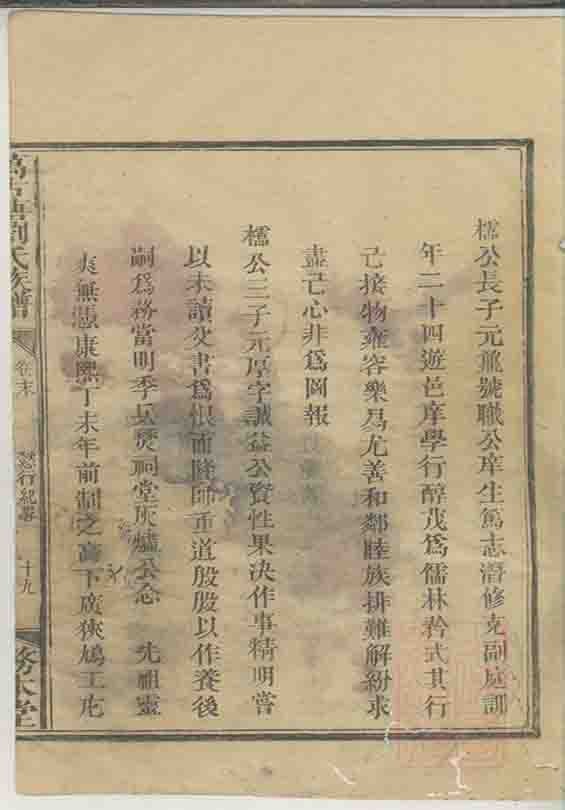 檽公長子元飛號職公庠生篤志潛修克副庭訓
年二十四遊邑庠學行醇茂為儒林矜式其行
己接物雍容樂易尤善和鄰睦族排難解紛求
盡己心非為圖報
檽公三子元厚字誠益公資性果決作事精明嘗
以未讀父書為恨而隆師重道殷殷以作養後
嗣為務當明季兵燹祠堂灰爐公念 先祖靈
爽無憑康熙丁未年前制之高下廣狹鳩工庀
劉氏族譜
卷末
懿行紀畧
十九
務本堂